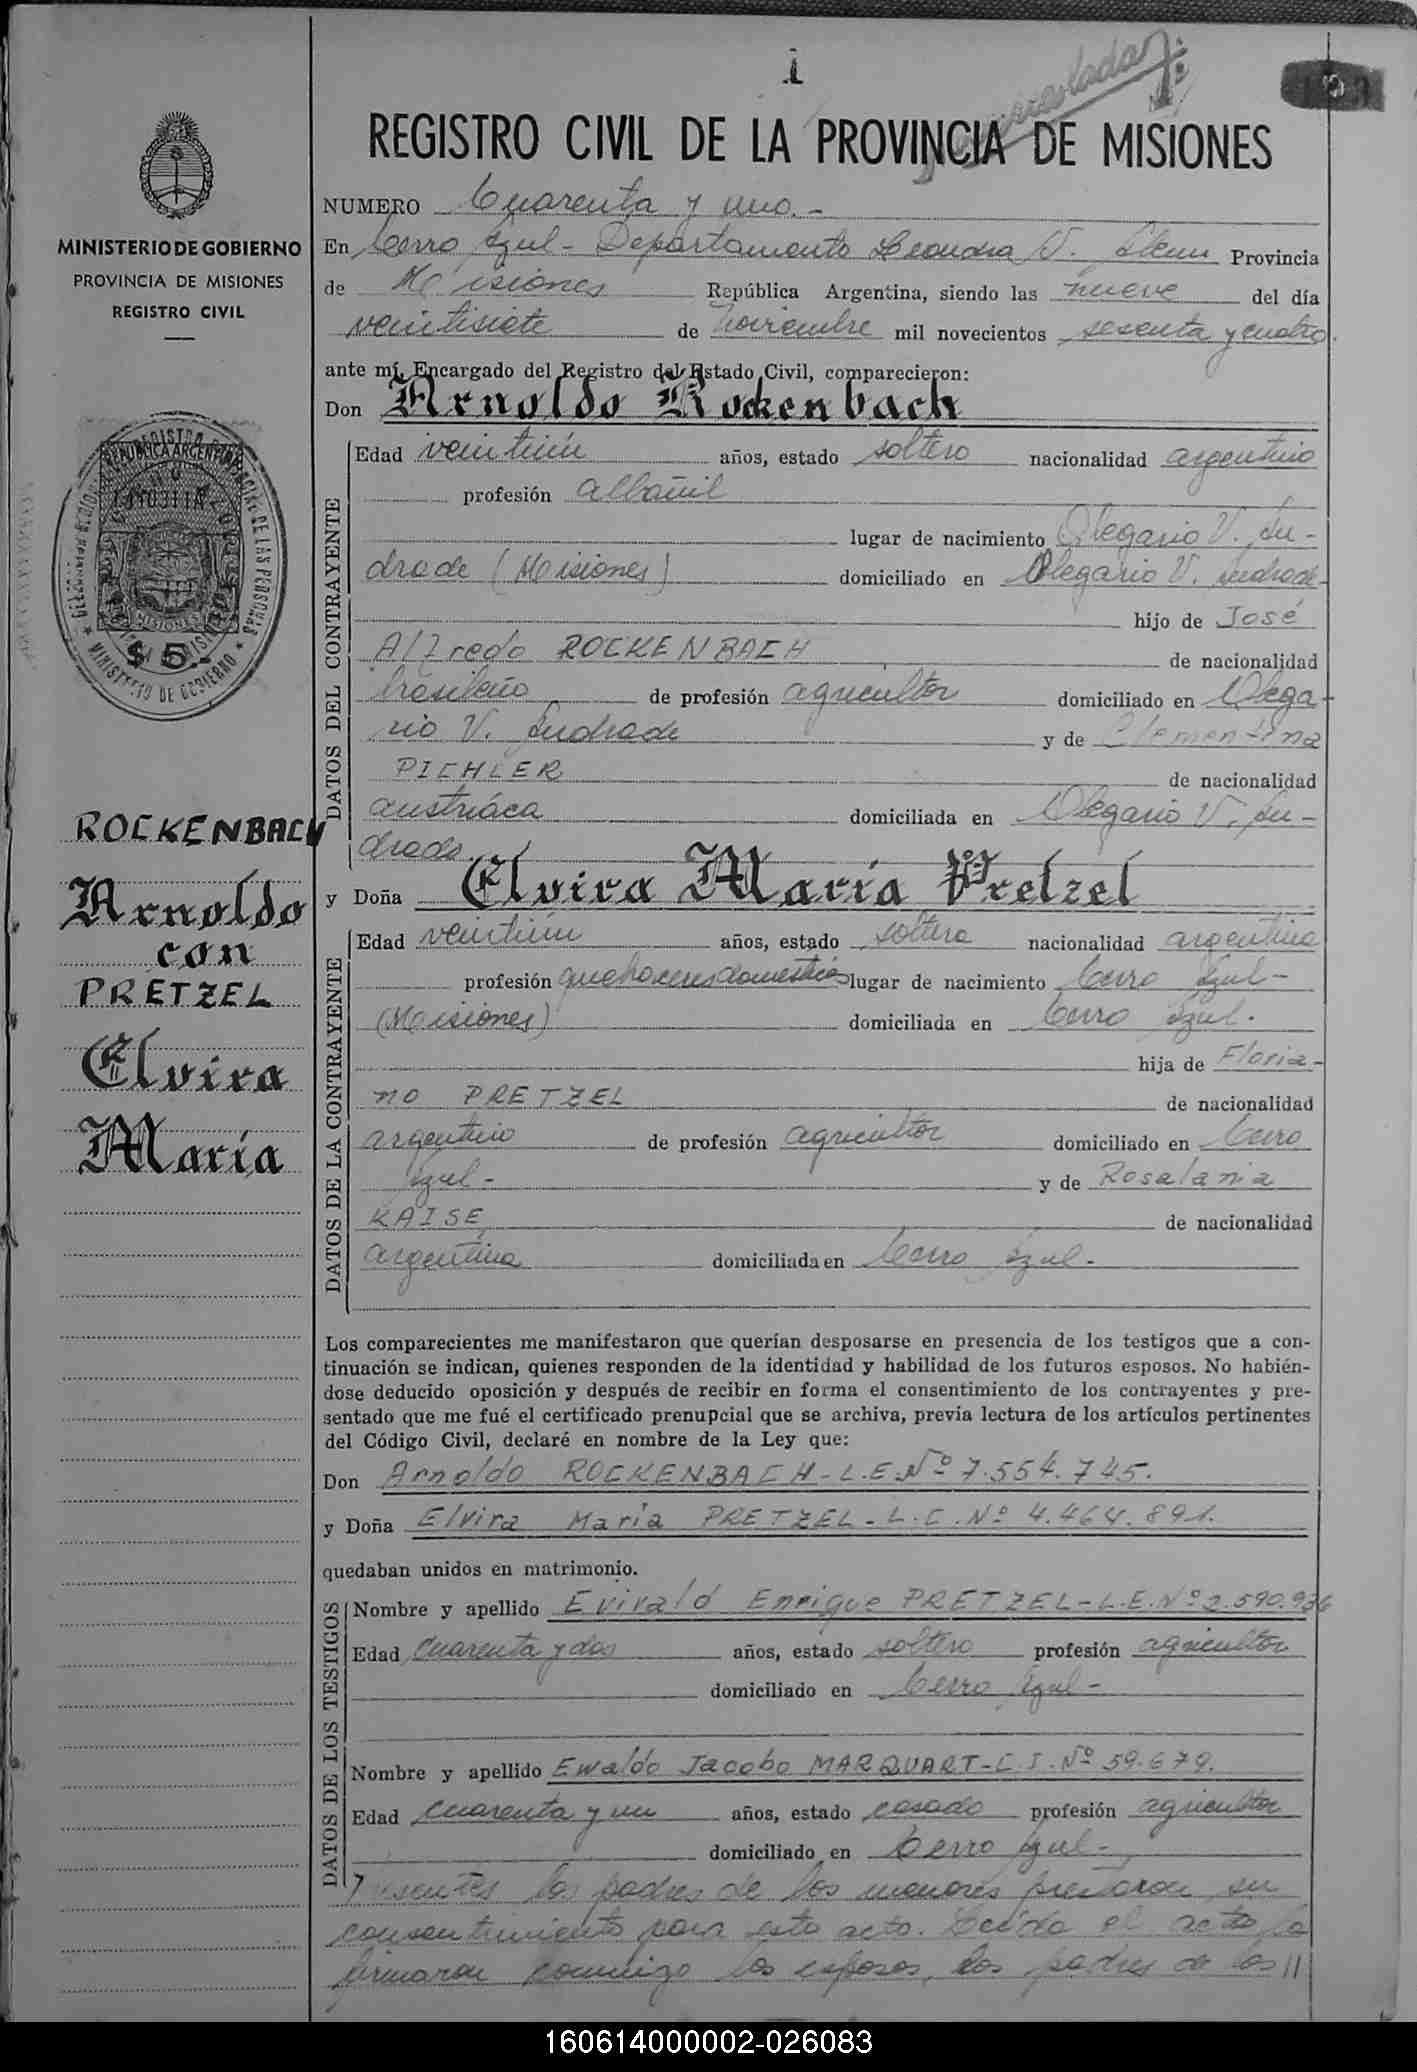 1
REGISTRO CIVIL DE LA PROVINCIA DE MISIONES
MINISTERIO DE GOBIERNO
PROVINCIA DE MISIONES
REGISTRO CIVIL
$ 5.-
ROCKENBACH
Arnoldo
con
PRETZEL
Elvira
María
NUMERO Cuarenta y uno.-
En Cerro Azul - Departamento Leandro N. Alem Provincia
de Misiones República Argentina, siendo las nueve del día
veintisiete de noviembre mil novecientos sesenta y cuatro.
ante mí, Encargado del Registro del Estado Civil, comparecieron:
Don Arnoldo Rockenbach
DATOS DEL CONTRAYENTE
Edad veintiún años, estado soltero nacionalidad argentino
profesión albañil
lugar de nacimiento Olegario V. An-
drade (Misiones) domiciliado en Olegario V. Andrade
hijo de José
Alfredo ROCKENBACH de nacionalidad
brasileño de profesión agricultor domiciliado en Olega-
rio V. Andrade y de Clementina
PICHLER de nacionalidad
austríaca domiciliada en Olegario V. An-
drade.
y Doña Elvira María Pretzel
DATOS DE LA CONTRAYENTE
Edad veintiún años, estado soltera nacionalidad argentina
profesión quehaceres domésticos lugar de nacimiento Cerro Azul-
(Misiones) domiciliada en Cerro Azul.
hija de Floria-
no PRETZEL de nacionalidad
argentino de profesión agricultor domiciliado en Cerro
Azul- y de Rosalania
KAISE de nacionalidad
argentina domiciliada en Cerro Azul.-
Los comparecientes me manifestaron que querían desposarse en presencia de los testigos que a con-
tinuación se indican, quienes responden de la identidad y habilidad de los futuros esposos. No habién-
dose deducido oposición y después de recibir en forma el consentimiento de los contrayentes y pre-
sentado que me fué el certificado prenupcial que se archiva, previa lectura de los artículos pertinentes
del Código Civil, declaré en nombre de la Ley que:
Don Arnoldo ROCKENBACH-L.E.Nº 7.554.745.
y Doña Elvira María PRETZEL-L.C.Nº 4.464.891.
quedaban unidos en matrimonio.
DATOS DE LOS TESTIGOS
Nombre y apellido Evivald Enrique PRETZEL-L.E.Nº 2.590.936
Edad cuarenta y dos años, estado soltero profesión agricultor
domiciliado en Cerro Azul-
Nombre y apellido Ewaldo Jacobo MARQUART-C.I.Nº 59.679.
Edad cuarenta y un años, estado casado profesión agricultor
domiciliado en Cerro Azul-
Presentes los padres de los menores prestaron su
consentimiento para este acto. Leída el acta la
firmaron conmigo los esposos, los padres de los //
160614000002-026083